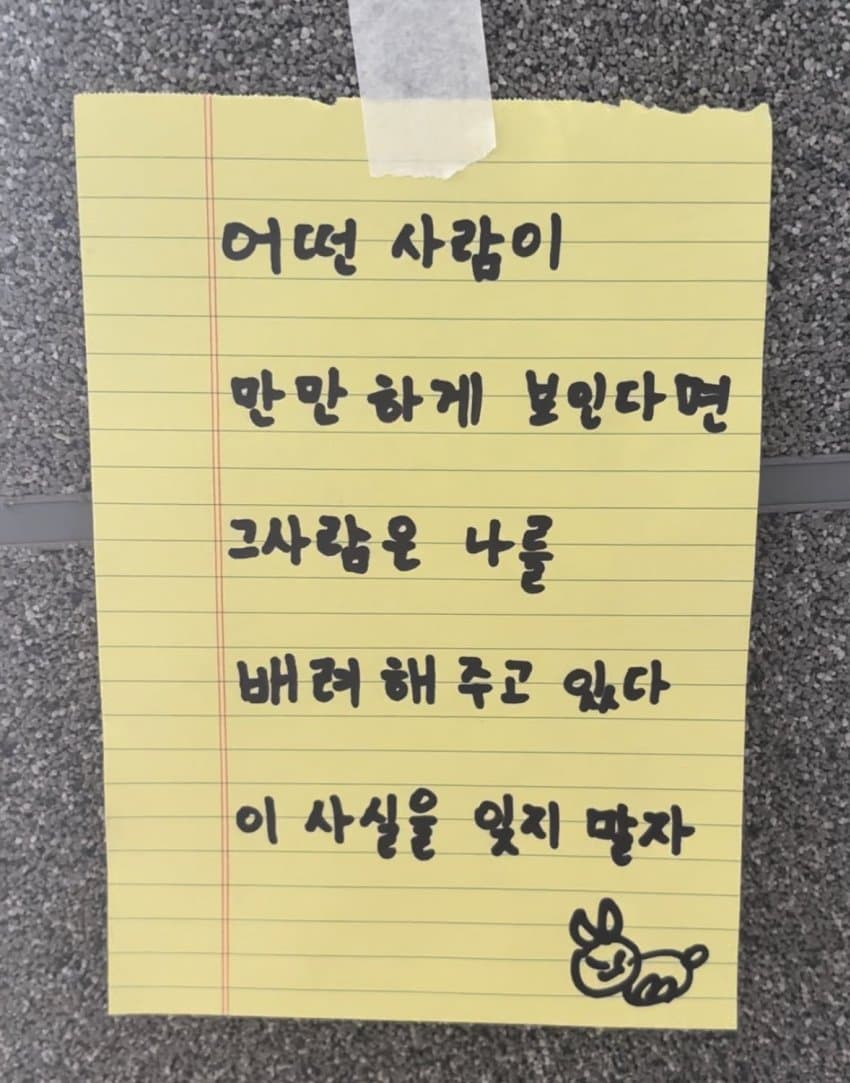 어떤 사람이
만만하게 보인다면
그사람은 나를
배려해 주고 있다
이 사실을 잊지 말자